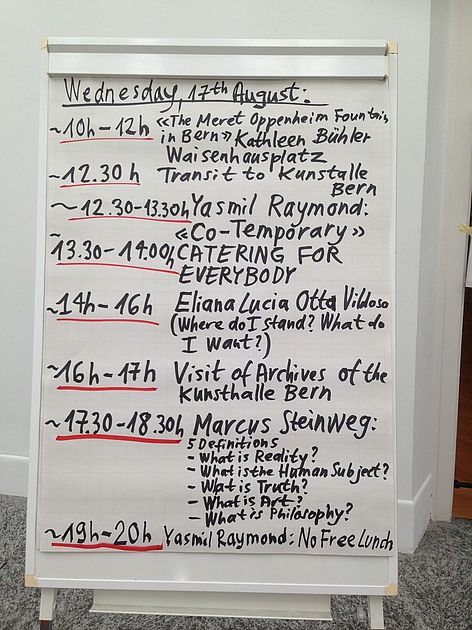 Wednesday, 17th August:
~10h-12h «The Meret Oppenheim Fountnis
in Bern» Kathleen Bühler
Waisenhausplatz
~12.30h Transit to Kunstalle
Bern
~12.30-13.30h Yasmil Raymond:
«Co-Temporary»
~13.30-14.00h CATERING FOR
EVERYBODY
~14h-16h Eliana Lucia Otta Vildoso
(Where do I stand? What do
I Want?)
~16h-17h Visit of Archives of the
Kunsthalle Bern
~17.30-18.30h Marcus Steinweg:
5 Definitions
- What is Reality?
- What is the Human Subject?
- Wat is Truth?
- What is Art?
- What is Philosophy?
~19h-20h Yasmil Raymond: No Free Lunch